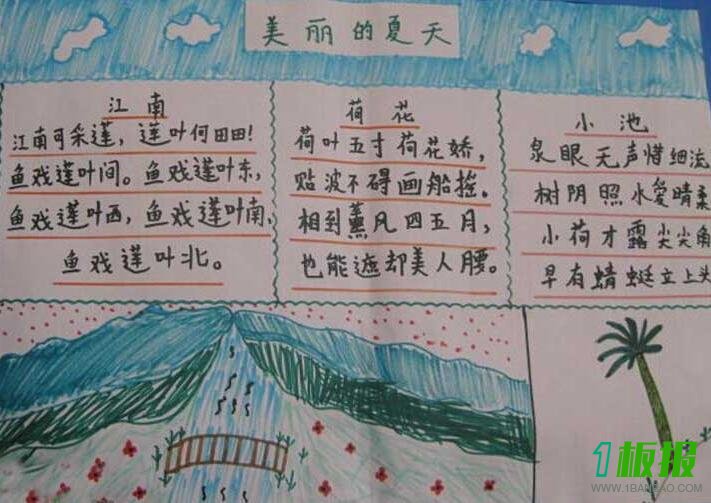 美丽的夏天
江南
江南可采莲，莲叶何田田！
鱼戏莲叶间。鱼戏莲叶东，
鱼戏莲叶西，鱼戏莲叶南、
鱼戏莲叶北。
荷花
荷叶五寸荷花娇，
贴波不碍画船摇。
相到薰凡四五月，
也能遮却美人腰。
小池
泉眼无声惜细流
树阴照水爱晴柔
小荷才露尖尖角
早有蜻蜓立上头
1板报
WWW.1BANBAO.COM